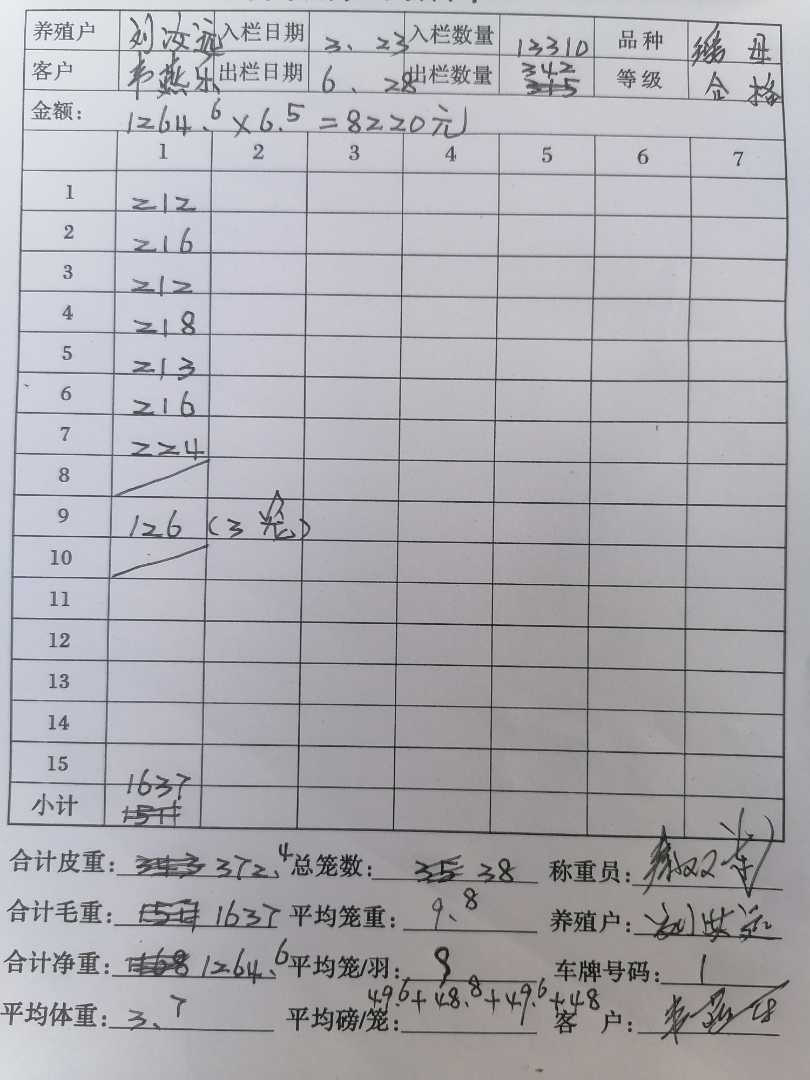 养殖户 刘汝远 入栏日期 3、23 入栏数量 13310 品种 母
客户 韦燕 出栏日期 6、28 出栏数量 342 315 等级 合格
金额: 1264.6×6.5=8220元
1 2 3 4 5 6 7
1 212
2 216
3 212
4 218
5 213
6 216
7 224
8
9 126 (3笼)
10
11
12
13
14
15
小计 1637 1511
合计皮重: 343 372.4 总笼数: 35 38 称重员:
合计毛重: 1511 1637 平均笼重: 9.8 养殖户: 刘汝远
合计净重: 1168 1264.6 平均笼/羽: 9 车牌号码: 1
平均体重: 3.7 平均磅/笼: 49.6+48.8+49.6+48 客户: